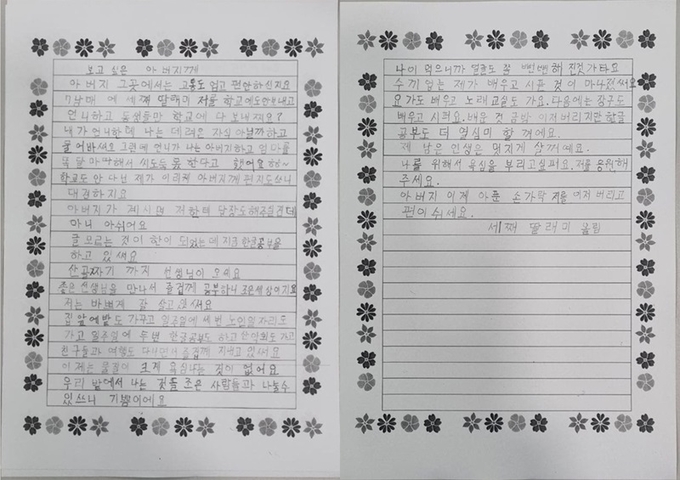 보고 싶은 아버지께
아버지 그곳에서는 고통도 업고 편안하신지요
7남매 에 세째 딸래미 저를 학교에도 안보내고
언니하고 동생들만 학교에 다 보내쩌요?
내가 언니한테 나는 데려온 자식 아닐까하고
물어바써요 그런데 언니가 나는 아버지하고 엄마를
똑 달마따해서 씨도둑 못 한다고 했어요 하하~
학교도 안 다닌 제가 이러케 아버지께 편지도쓰니
대견하지요
아버지가 계시면 저한테 답장도해주실건데
마니 아쉬어요
글 모르는 것이 한이 되었는데 지금 한글공부를
하고 있써요
산골짜기 까지 선생님이 오세요
좋은 선생님을 만나서 즐겁게 공부하니 조은세상이지요
저는 바쁘게 잘 살고 있써요
집 앞에 밭도 가꾸고 일주일에 세 번 노인일자리도
가고 일주일에 두 번 한글공부도 하고
친구들과 여행도 다니면서 즐겁게 지내고 있써요
이제는 물건이 크게 욕심나는 것이 없어요
우리 밭에서 나는 것들 조은 사람들과 나눌수
있쓰니 기쁨이에요
나이 먹으니까 얼굴도 좀 뻔뻔해 진것 가타요
수끼 없는 제가 배우고 시픈 것이 마나졌써요
요가도 배우고 노래교실도 가요. 다음에는 장구도
배우고 시러요. 배운 것 금방 이저버리지만 한글
공부도 더 열심미 할 꺼에요.
제 남은 인생은 멋지게 살꺼예요.
나를 위해서 욕심을 부리고십퍼요. 저를 응원해
주세요.
아버지 이제 아푼 손가락 저를 이저 버리고
편이 쉬세요.
세째 딸래미 올림